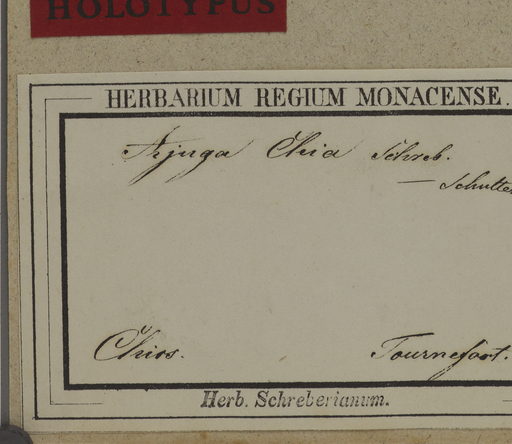 HOLOTYPUS
HERBARIUM REGIUM MONACENSE.
Ajuga Chia Schreb.
— Schulte
Chios. Tournefort.
Herb. Schreberianum.